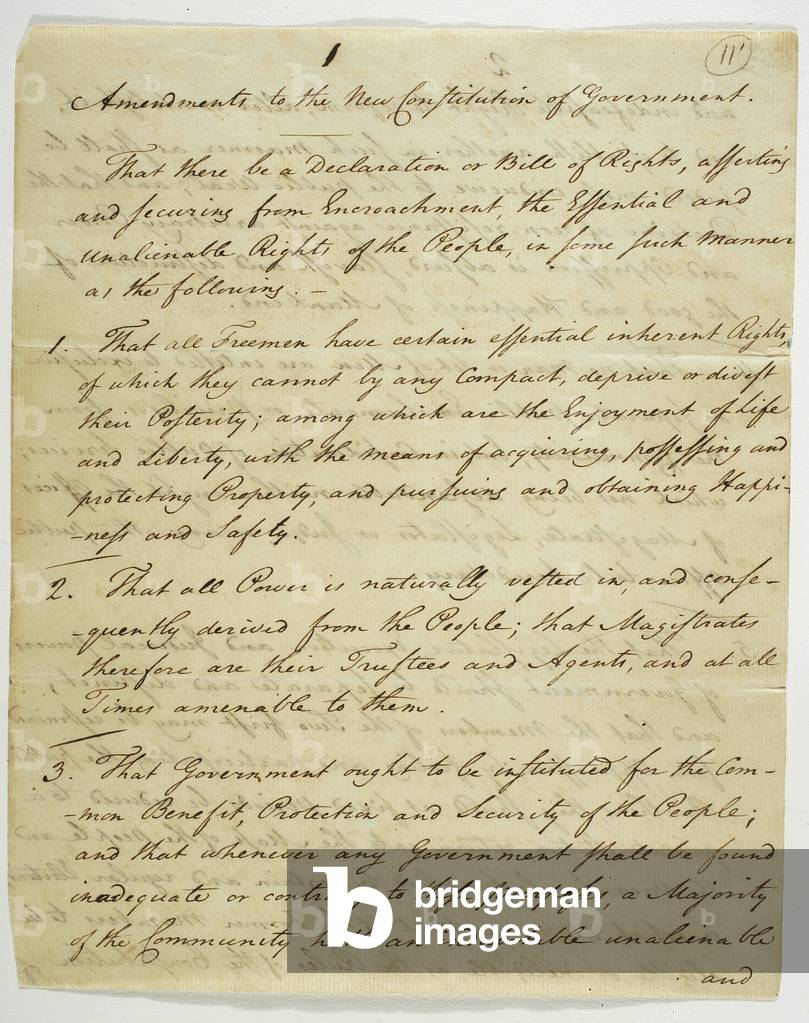 1
11'
Amendments to the New Constitution of Government.
That there be a Declaration or Bill of Rights, asserting
and securing from Encroachment, the Essential and
unalienable Rights of the People, in some such Manner
as the following. —
1. That all Freemen have certain essential inherent Rights,
of which they cannot by any Compact, deprive or divest
their Posterity; among which are the Enjoyment of Life
and Liberty, with the means of acquiring, possessing and
protecting Property, and pursuing and obtaining Happi-
-ness and Safety.
2. That all Power is naturally vested in, and conse-
-quently derived from the People; that Magistrates
therefore are their Trustees and Agents, and at all
Times amenable to them.
3. That Government ought to be instituted for the Com-
-mon Benefit, Protection and Security of the People;
and that whenever any Government shall be found
inadequate or to a Majority
of the Community unalienable
and
b bridgeman
images